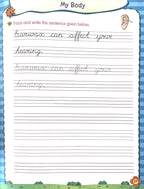 My Body
Trace and write the sentence given below.
Earwax can affect your
hearing.
Earwax can affect your
hearing.